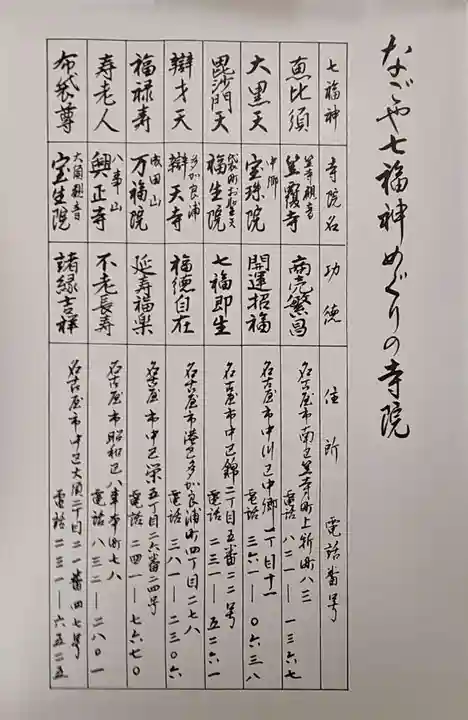 なごや七福神めぐりの寺院
七福神 寺院名 功徳 住所 電話番号
恵比須 笠寺観音 笠覆寺 商売繁昌 名古屋市南区笠寺町上新町八二
電話 八二一―一三六七
大黒天 中郷 宝珠院 開運招福 名古屋市中川区中郷一丁目十一
電話 三六一―〇六三八
毘沙門天 袋町お聖天 福生院 七福即生 名古屋市中区錦二丁目五番二二号
電話 二三一―五二六一
辯才天 多加良浦 辯天寺 福徳自在 名古屋市港区多加良浦町四丁目二七八
電話 三八一―二三〇六
福禄寿 成田山 万福院 延寿福楽 名古屋市中区栄五丁目二六番二四号
電話 二四一―七六七〇
寿老人 八事山 興正寺 不老長寿 名古屋市昭和区八事本町七八
電話 八三二―二八〇一
布袋尊 大須観音 宝生院 諸縁吉祥 名古屋市中区大須二丁目二一番四七号
電話 二三一―六五二五